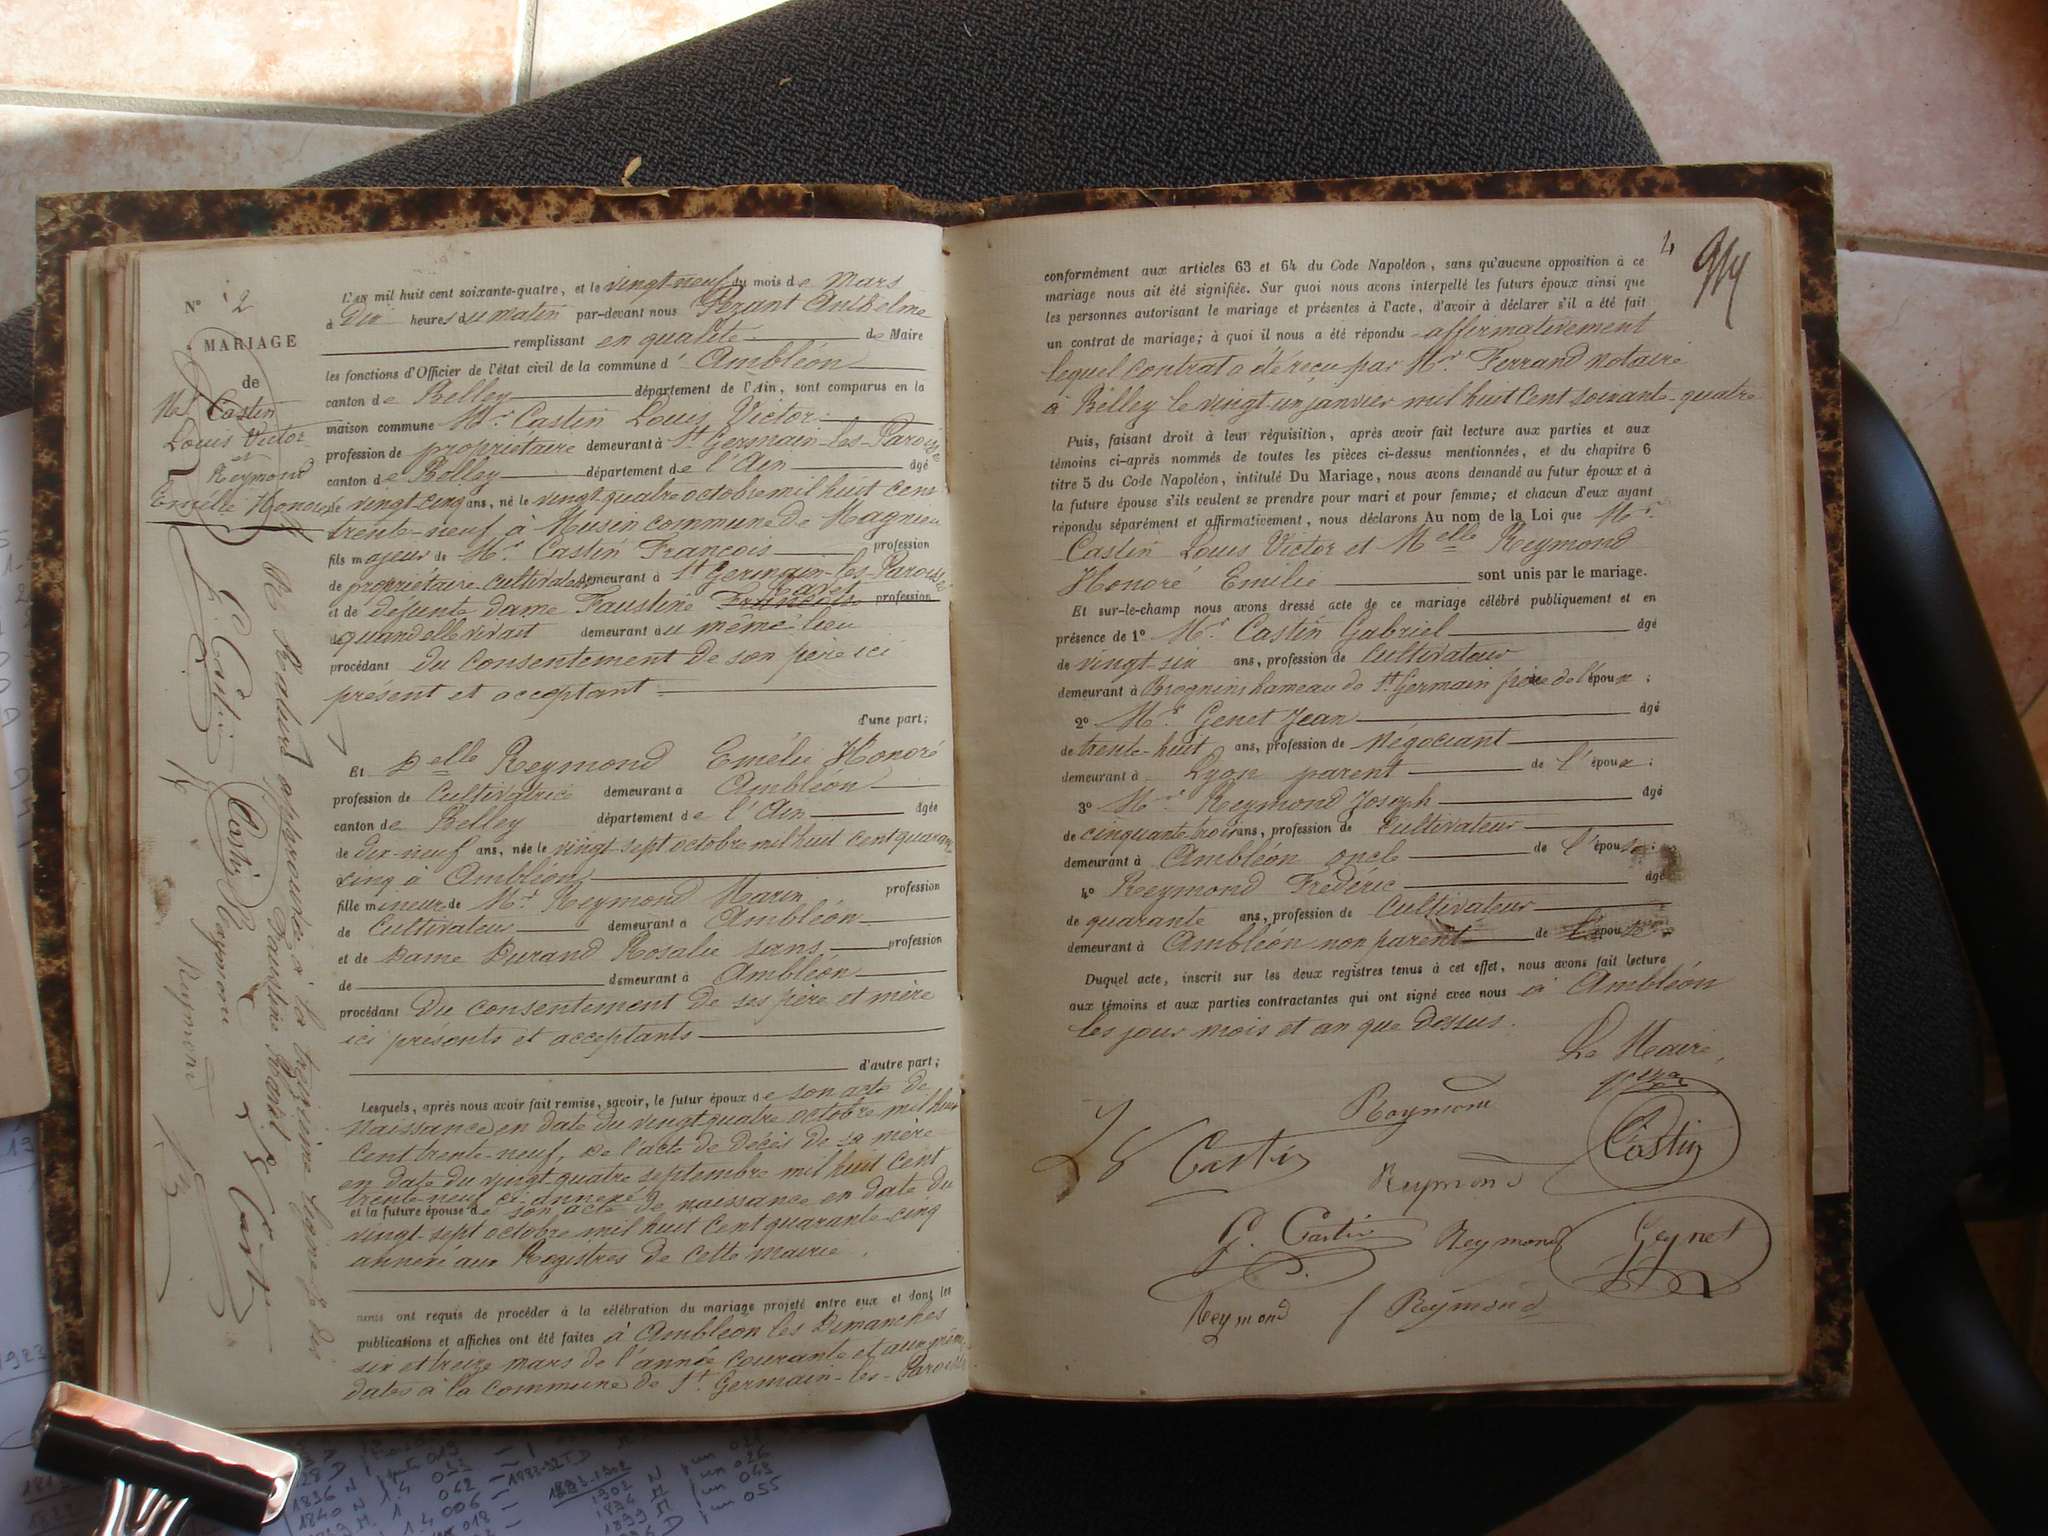 N° 2
MARIAGE
de
Mr Castin
Louis Victor
et
Reymond
Emélie Honoré
L'an mil huit cent soixante-quatre, et le vingt-neuf du mois de Mars
à Dix heures du matin par-devant nous Pezant Anthelme
remplissant en qualité de Maire
les fonctions d'Officier de l'état civil de la commune d' Ambléon
canton de Belley département de l'Ain, sont comparus en la
maison commune Mr Castin Louis Victor
profession de propriétaire demeurant à St Germain-les-Paroisse
canton de Belley département de l'Ain âgé
de vingt-cinq ans, né le vingt quatre octobre mil huit cent
trente-neuf à Musin commune de Magnieu
fils majeur de Mr Castin François profession
de propriétaire-cultivateur demeurant à St Germain-les-Paroisse
et de defunte dame Faustine profession
de quand elle vivait demeurant au même lieu
procédant du consentement de son père ici
présent et acceptant
d'une part;
Et Delle Reymond Emélie Honoré
profession de Cultivatrice demeurant à Ambléon
canton de Belley département de l'Ain âgée
de dix-neuf ans, née le vingt sept octobre mil huit cent quarante
cinq à Ambléon
fille mineure de Mr Reymond Marin profession
de Cultivateur demeurant à Ambléon
et de Dame Durand Rosalie sans profession
de demeurant à Ambléon
procédant Du consentement de ses père et mère
ici présents et acceptants
d'autre part;
Lesquels, après nous avoir fait remise, savoir, le futur époux de son acte de
naissance en date du vingt quatre octobre mil huit
cent trente-neuf, de l'acte de décès de sa mère
en date du vingt quatre septembre mil huit cent
trente-neuf ci annexé
et la future épouse de son acte de naissance en date du
vingt-sept octobre mil huit cent quarante-cinq
annexé aux Registres de cette mairie.
nous ont requis de procéder à la célébration du mariage projeté entre eux et dont les
publications et affiches ont été faites à Ambléon les Dimanches
six et treize mars de l'année courante et aux mêmes
dates à la commune de St Germain-les-Paroisse
approuvée à la treizième ligne
Faustine
L. Castin
Castin
Reymond
Reymond
4
conformément aux articles 63 et 64 du Code Napoléon, sans qu'aucune opposition à ce
mariage nous ait été signifiée. Sur quoi nous avons interpellé les futurs époux ainsi que
les personnes autorisant le mariage et présentes à l'acte, d'avoir à déclarer s'il a été fait
un contrat de mariage; à quoi il nous a été répondu affirmativement
lequel contrat a été reçu par Mr Ferrand notaire
à Belley le vingt-un janvier mil huit cent soixante-quatre
Puis, faisant droit à leur réquisition, après avoir fait lecture aux parties et aux
témoins ci-après nommés de toutes les pièces ci-dessus mentionnées, et du chapitre 6
titre 5 du Code Napoléon, intitulé Du Mariage, nous avons demandé au futur époux et à
la future épouse s'ils veulent se prendre pour mari et pour femme; et chacun d'eux ayant
répondu séparément et affirmativement, nous déclarons Au nom de la Loi que Mr
Castin Louis Victor et Melle Reymond
Honoré Emilie sont unis par le mariage.
Et sur-le-champ nous avons dressé acte de ce mariage célébré publiquement et en
présence de 1° Mr Castin Gabriel âgé
de vingt-six ans, profession de Cultivateur
demeurant à Brognins hameau de St Germain frère de l'époux;
2° Mr Genet Jean âgé
de trente-huit ans, profession de Négociant
demeurant à Lyon parent de l'époux;
3° Mr Reymond Joseph âgé
de cinquante trois ans, profession de Cultivateur
demeurant à Ambléon oncle de l'épouse;
4° Reymond Frédéric âgé
de quarante ans, profession de Cultivateur
demeurant à Ambléon non parent de l'épouse.
Duquel acte, inscrit sur les deux registres tenus à cet effet, nous avons fait lecture
aux témoins et aux parties contractantes qui ont signé avec nous à Ambléon
les jour mois et an que dessus.
Le Maire,
Reymond
Castin
Castin
Reymond
G. Castin
Reymond
Geynet
Reymond
f Reymond